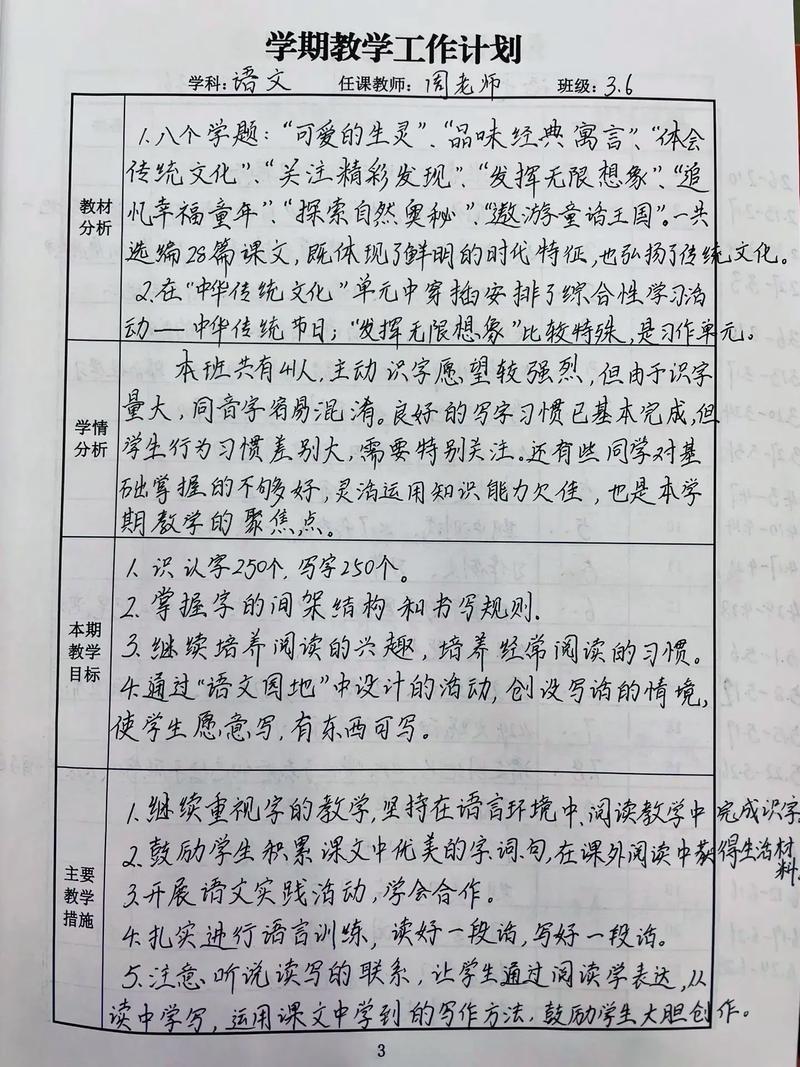 学期教学工作计划
学科: 语文 任课教师: 周老师 班级: 3.6
教材
分析
1.八个学题:“可爱的生灵”、“品味经典寓言”、“体会
传统文化”、“关注精彩发现”、“发挥无限想象”、“追
忆幸福童年”、“探索自然奥秘”、“遨游童话王国”。一共
选编28篇课文,既体现了鲜明的时代特征,也弘扬了传统文化。
2.在“中华传统文化”单元中穿插安排了综合性学习活
动——中华传统节日;“发挥无限想象”比较特殊,是习作单元。
学情
分析
本班共有41人,主动识字愿望较强烈,但由于识字
量大,同音字容易混淆。良好的写字习惯已基本完成,但
学生行为习惯差别大,需要特别关注。还有些同学对基
础掌握的不够好,灵活运用知识能力欠佳,也是本学
期教学的聚焦点。
本期
教学
目标
1.识认字250个,写字250个。
2.掌握字的间架结构和书写规则.
3.继续培养阅读的兴趣,培养经常阅读的习惯。
4.通过“语文园地”中设计的活动,创设写话的情境,
使学生愿意写,有东西可写。
主要
教学
措施
1.继续重视字的教学,坚持在语言环境中、阅读教学中完成识字.
2.鼓励学生积累课文中优美的字词句,在课外阅读中获得生活材
料.
3.开展语文实践活动,学会合作。
4.扎实进行语言训练,读好一段话,写好一段话。
5.注意听说读写的联系,让学生通过阅读学表达,从
读中学写,运用课文中学到的写作方法,鼓励学生大胆创作。
3